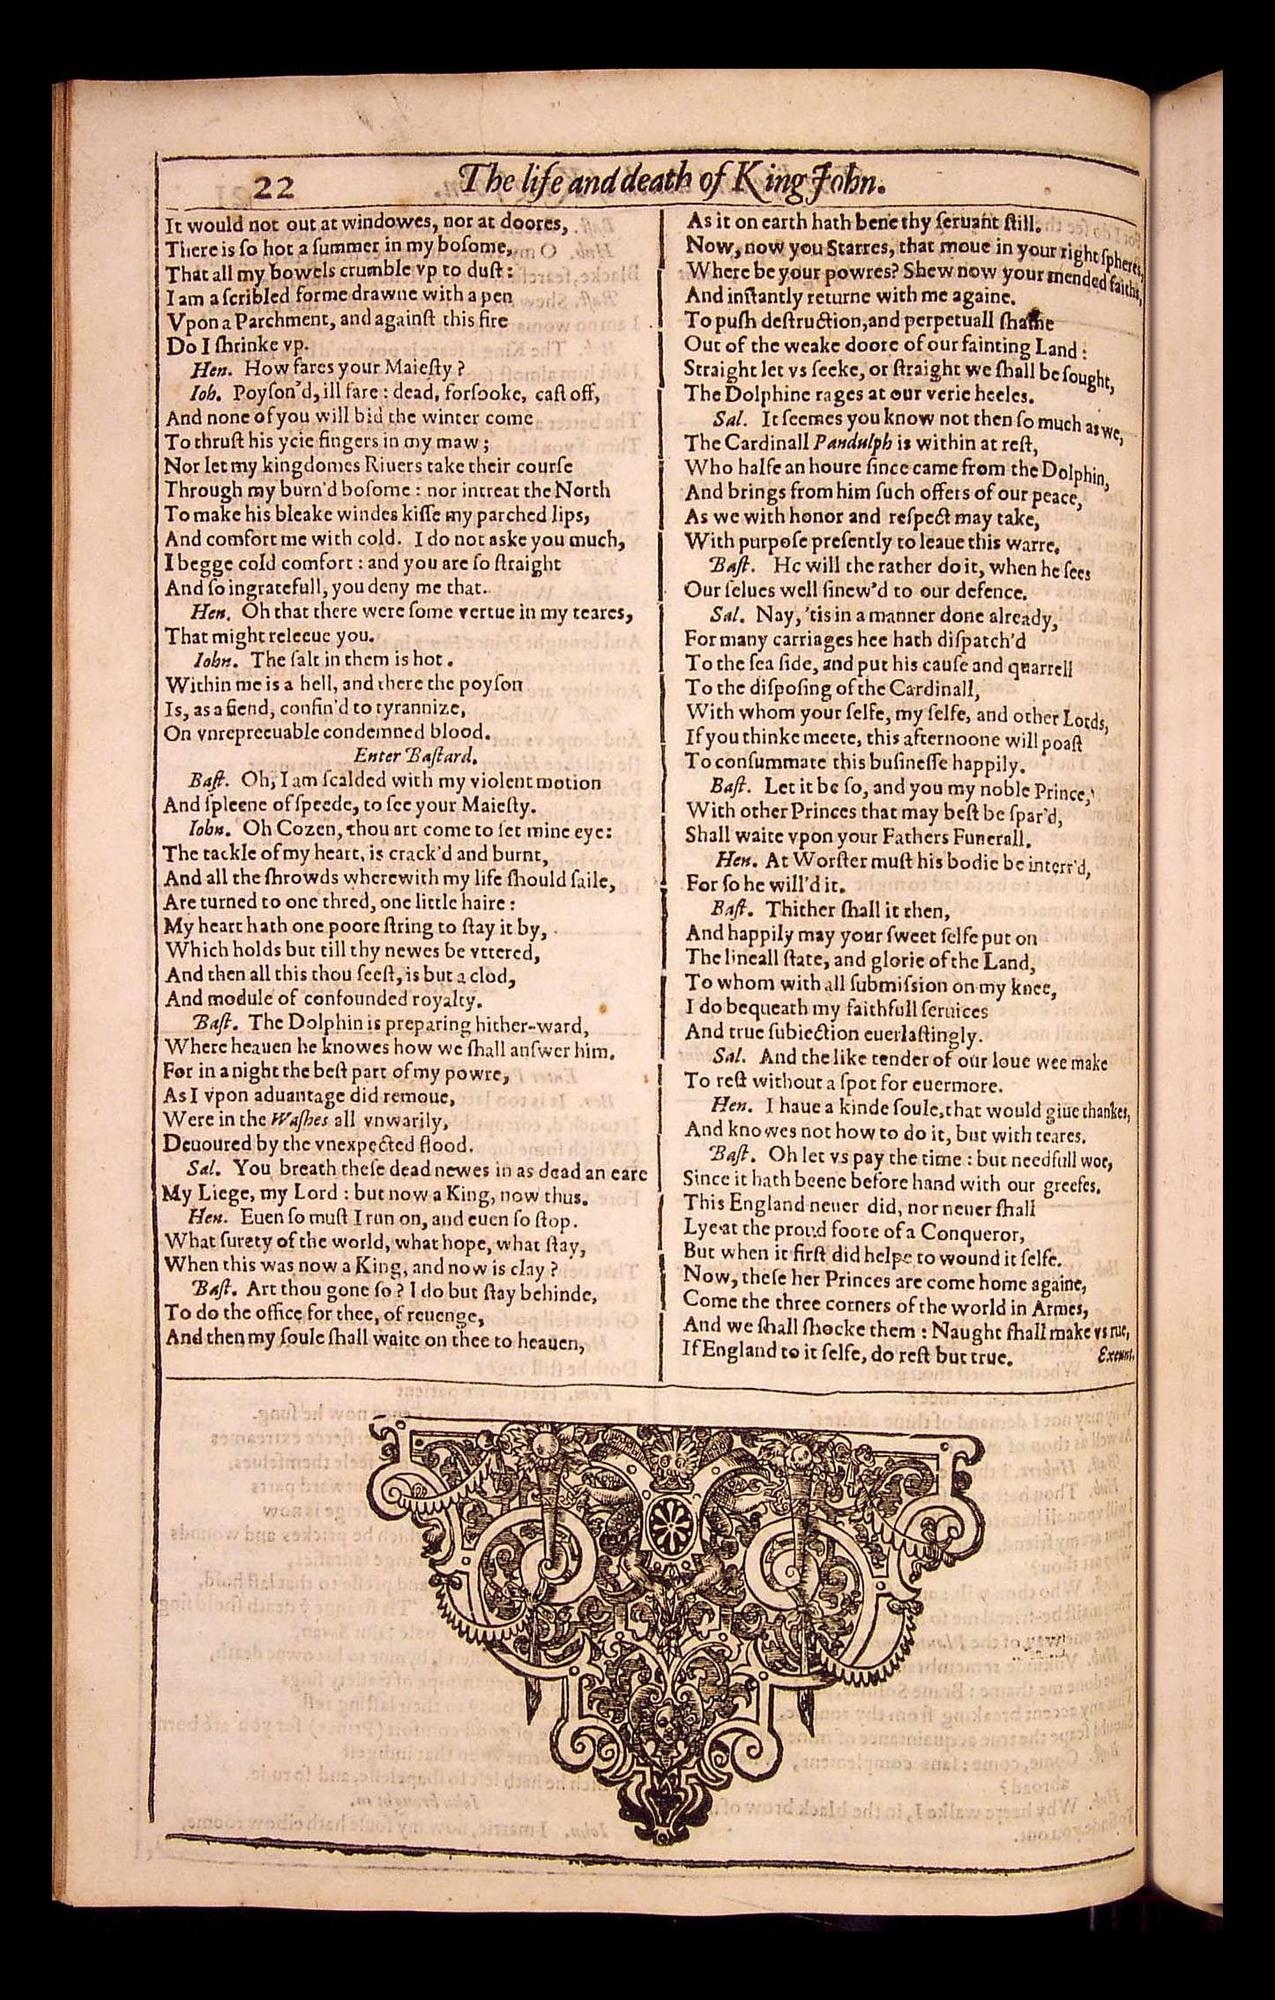 22
The life and death of King John.
It would not out at windowes, nor at doores,
There is ſo hot a ſummer in my boſome,
That all my bowels crumble vp to duſt:
I am a ſcribled forme drawne with a pen
Vpon a Parchment, and againſt this fire
Do I ſhrinke vp.
Hen. How fares your Maieſty?
Ioh. Poyſon'd, ill fare: dead, forſooke, caſt off,
And none of you will bid the winter come
To thruſt his ycie fingers in my maw;
Nor let my kingdomes Riuers take their courſe
Through my burn'd boſome: nor intreat the North
To make his bleake windes kiſſe my parched lips,
And comfort me with cold. I do not aske you much,
I begge cold comfort: and you are ſo ſtraight
And ſo ingratefull, you deny me that.
Hen. Oh that there were ſome vertue in my teares,
That might releeue you.
Iohn. The ſalt in them is hot.
Within me is a hell, and there the poyſon
Is, as a fiend, confin'd to tyrannize,
On vnrepreeuable condemned blood.
Enter Baſtard.
Baſt. Oh, I am ſcalded with my violent motion
And ſpleene of ſpeede, to ſee your Maieſty.
Iohn. Oh Cozen, thou art come to ſet mine eye:
The tackle of my heart, is crack'd and burnt,
And all the ſhrowds wherewith my life ſhould ſaile,
Are turned to one thred, one little haire:
My heart hath one poore ſtring to ſtay it by,
Which holds but till thy newes be vttered,
And then all this thou ſeeſt, is but a clod,
And module of confounded royalty.
Baſt. The Dolphin is preparing hither-ward,
Where heauen he knowes how we ſhall anſwer him.
For in a night the beſt part of my powre,
As I vpon aduantage did remoue,
Were in the Waſhes all vnwarily,
Deuoured by the vnexpected flood.
Sal. You breath theſe dead newes in as dead an eare
My Liege, my Lord: but now a King, now thus.
Hen. Euen ſo muſt I run on, and euen ſo ſtop.
What ſurety of the world, what hope, what ſtay,
When this was now a King, and now is clay?
Baſt. Art thou gone ſo? I do but ſtay behinde,
To do the office for thee, of reuenge,
And then my ſoule ſhall waite on thee to heauen,
As it on earth hath bene thy ſeruant ſtill.
Now, now you Starres, that moue in your right ſpheres,
Where be your powres? Shew now your mended faiths,
And inſtantly returne with me againe.
To puſh deſtruction, and perpetuall ſhame
Out of the weake doore of our fainting Land:
Straight let vs ſeeke, or ſtraight we ſhall be ſought,
The Dolphine rages at our verie heeles.
Sal. It ſeemes you know not then ſo much as we,
The Cardinall Pandulph is within at reſt,
Who halfe an houre ſince came from the Dolphin,
And brings from him ſuch offers of our peace,
As we with honor and reſpect may take,
With purpoſe preſently to leaue this warre.
Baſt. He will the rather do it, when he ſees
Our ſelues well ſinew'd to our defence.
Sal. Nay, 'tis in a manner done already,
For many carriages hee hath diſpatch'd
To the ſea ſide, and put his cauſe and quarrell
To the diſpoſing of the Cardinall,
With whom your ſelfe, my ſelfe, and other Lords,
If you thinke meete, this afternoone will poaſt
To conſummate this buſineſſe happily.
Baſt. Let it be ſo, and you my noble Prince,
With other Princes that may beſt be ſpar'd,
Shall waite vpon your Fathers Funerall.
Hen. At Worſter muſt his bodie be interr'd,
For ſo he will'd it.
Baſt. Thither ſhall it then,
And happily may your ſweet ſelfe put on
The lineall ſtate, and glorie of the Land,
To whom with all ſubmiſsion on my knee,
I do bequeath my faithfull ſeruices
And true ſubiection euerlaſtingly.
Sal. And the like tender of our loue wee make
To reſt without a ſpot for euermore.
Hen. I haue a kinde ſoule, that would giue thankes,
And knowes not how to do it, but with teares.
Baſt. Oh let vs pay the time: but needfull woe,
Since it hath beene before hand with our greefes.
This England neuer did, nor neuer ſhall
Lye at the proud foote of a Conqueror,
But when it firſt did helpe to wound it ſelfe.
Now, theſe her Princes are come home againe,
Come the three corners of the world in Armes,
And we ſhall ſhocke them: Naught ſhall make vs rue,
If England to it ſelfe, do reſt but true. Exeunt.